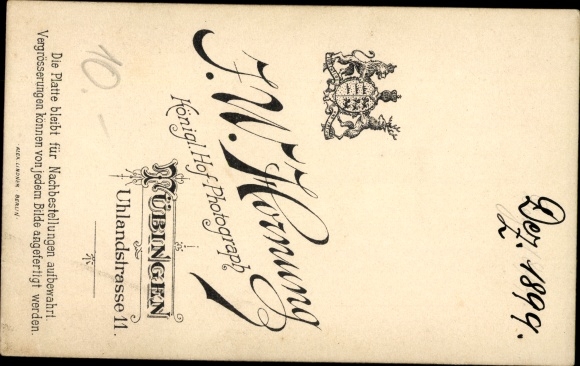 Dez. 1899.
Z.
J. W. Hornung
Königl. Hof-Photograph
TÜBINGEN
Uhlandstrasse 11.
10.–
Die Platte bleibt für Nachbestellungen aufbewahrt.
Vergrösserungen können von jedem Bilde angefertigt werden.
ALEX. LINDNER · BERLIN